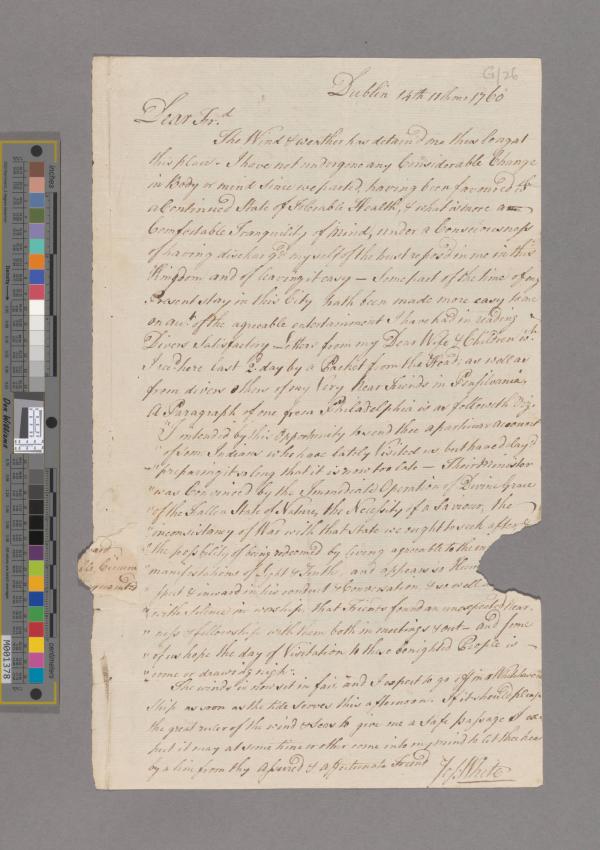 G/26
Dublin 14th 11th mo 1760
Dear Frd
The Wind & weather has detaind me thus long at
this place - I have not undergone any Considerable Change
in Body or mind Since we parted, having been favoured wth
a Continued State of Tolerable Health, & what is more a
Comfortable Tranquility of Mind, under a Consciousness
of having dischargd my self of the trust reposd in me in this
Kingdom and of leaving it easy - Some part of the time of my
Present stay in this City hath been made more easy to me
on acct of the agreeable entertainment I have had in reading
Divers Satisfactory Letters from my Dear Wife & Children wch
I recd here last 2 day by a Packet from the Head; as well as
from divers others of my Very Near Friends in Pensilvania,
A Paragraph of one from Philadelphia is as followeth Viz.
"I intended by this Opportunity to send thee a particular account
"of some Indians who have lately Visited us but have delayd
"preparing it so long that it is now too late - Their Minister
"was Convinced by the Immediate Operation of Divine Grace
"of the Fallen State of Nature, the Necessity of a Saviour, the
"inconsistancy of War with that State we ought to seek after &
"the possibility of being redeemed by living agreeable to the
"manifestations of Light & Truth, and appears so
& inward in his conduct & Conversation, & so well
"with Silence in worship, that Friends found an unexpected near
"ness & fellowship with them both in meetings & out - and some
"of us hope the day of Visitation to these benighted People is
"come or drawing nigh".
The wind is now set in fair and I expect to go off in a Whitehaven
Ship as soon as the tide serves this afternoon. If it should please
the great ruler of the wind & Seas to give me a Safe passage
but it may at some time or other come into my mind to let thee hear
by a line from thy Assured & affectionate Friend Jos White
M001378